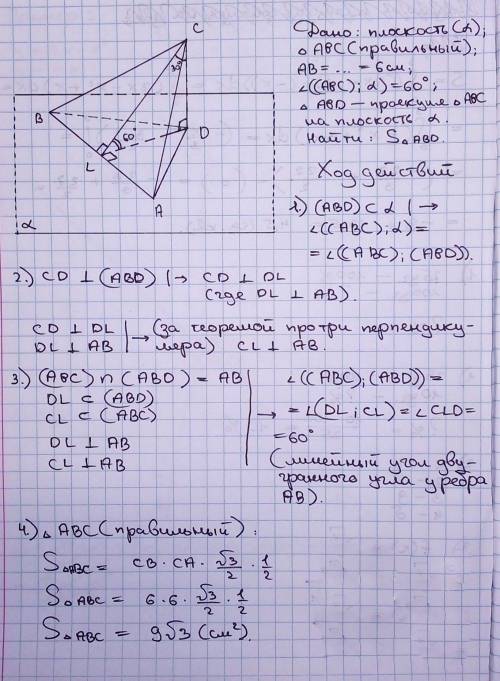 C
30°
B
D
60°
L
A
α
Дано: плоскость (α);
△ ABC (правильный);
AB = ... = 6 см;
∠((ABC); α) = 60°;
△ ABD — проекция △ ABC
на плоскость α.
Найти: S△ABD.
Ход действий
1.) (ABD) ⊂ α | →
∠((ABC); α) =
= ∠((ABC); (ABD)).
2.) CD ⊥ (ABD) | → CD ⊥ DL
(где DL ⊥ AB).
CD ⊥ DL
DL ⊥ AB | → (за теоремой про три перпендику-
ляра) CL ⊥ AB.
3.) (ABC) ∩ (ABD) = AB
DL ⊂ (ABD)
CL ⊂ (ABC)
DL ⊥ AB
CL ⊥ AB
∠((ABC); (ABD)) =
→ = ∠(DL; CL) = ∠CLD =
= 60°
(линейный угол дву-
гранного угла у ребра
AB).
4.) △ ABC (правильный):
S△ABC = CB · CA · √3/2 · 1/2
S△ABC = 6 · 6 · √3/2 · 1/2
S△ABC = 9√3 (см²).